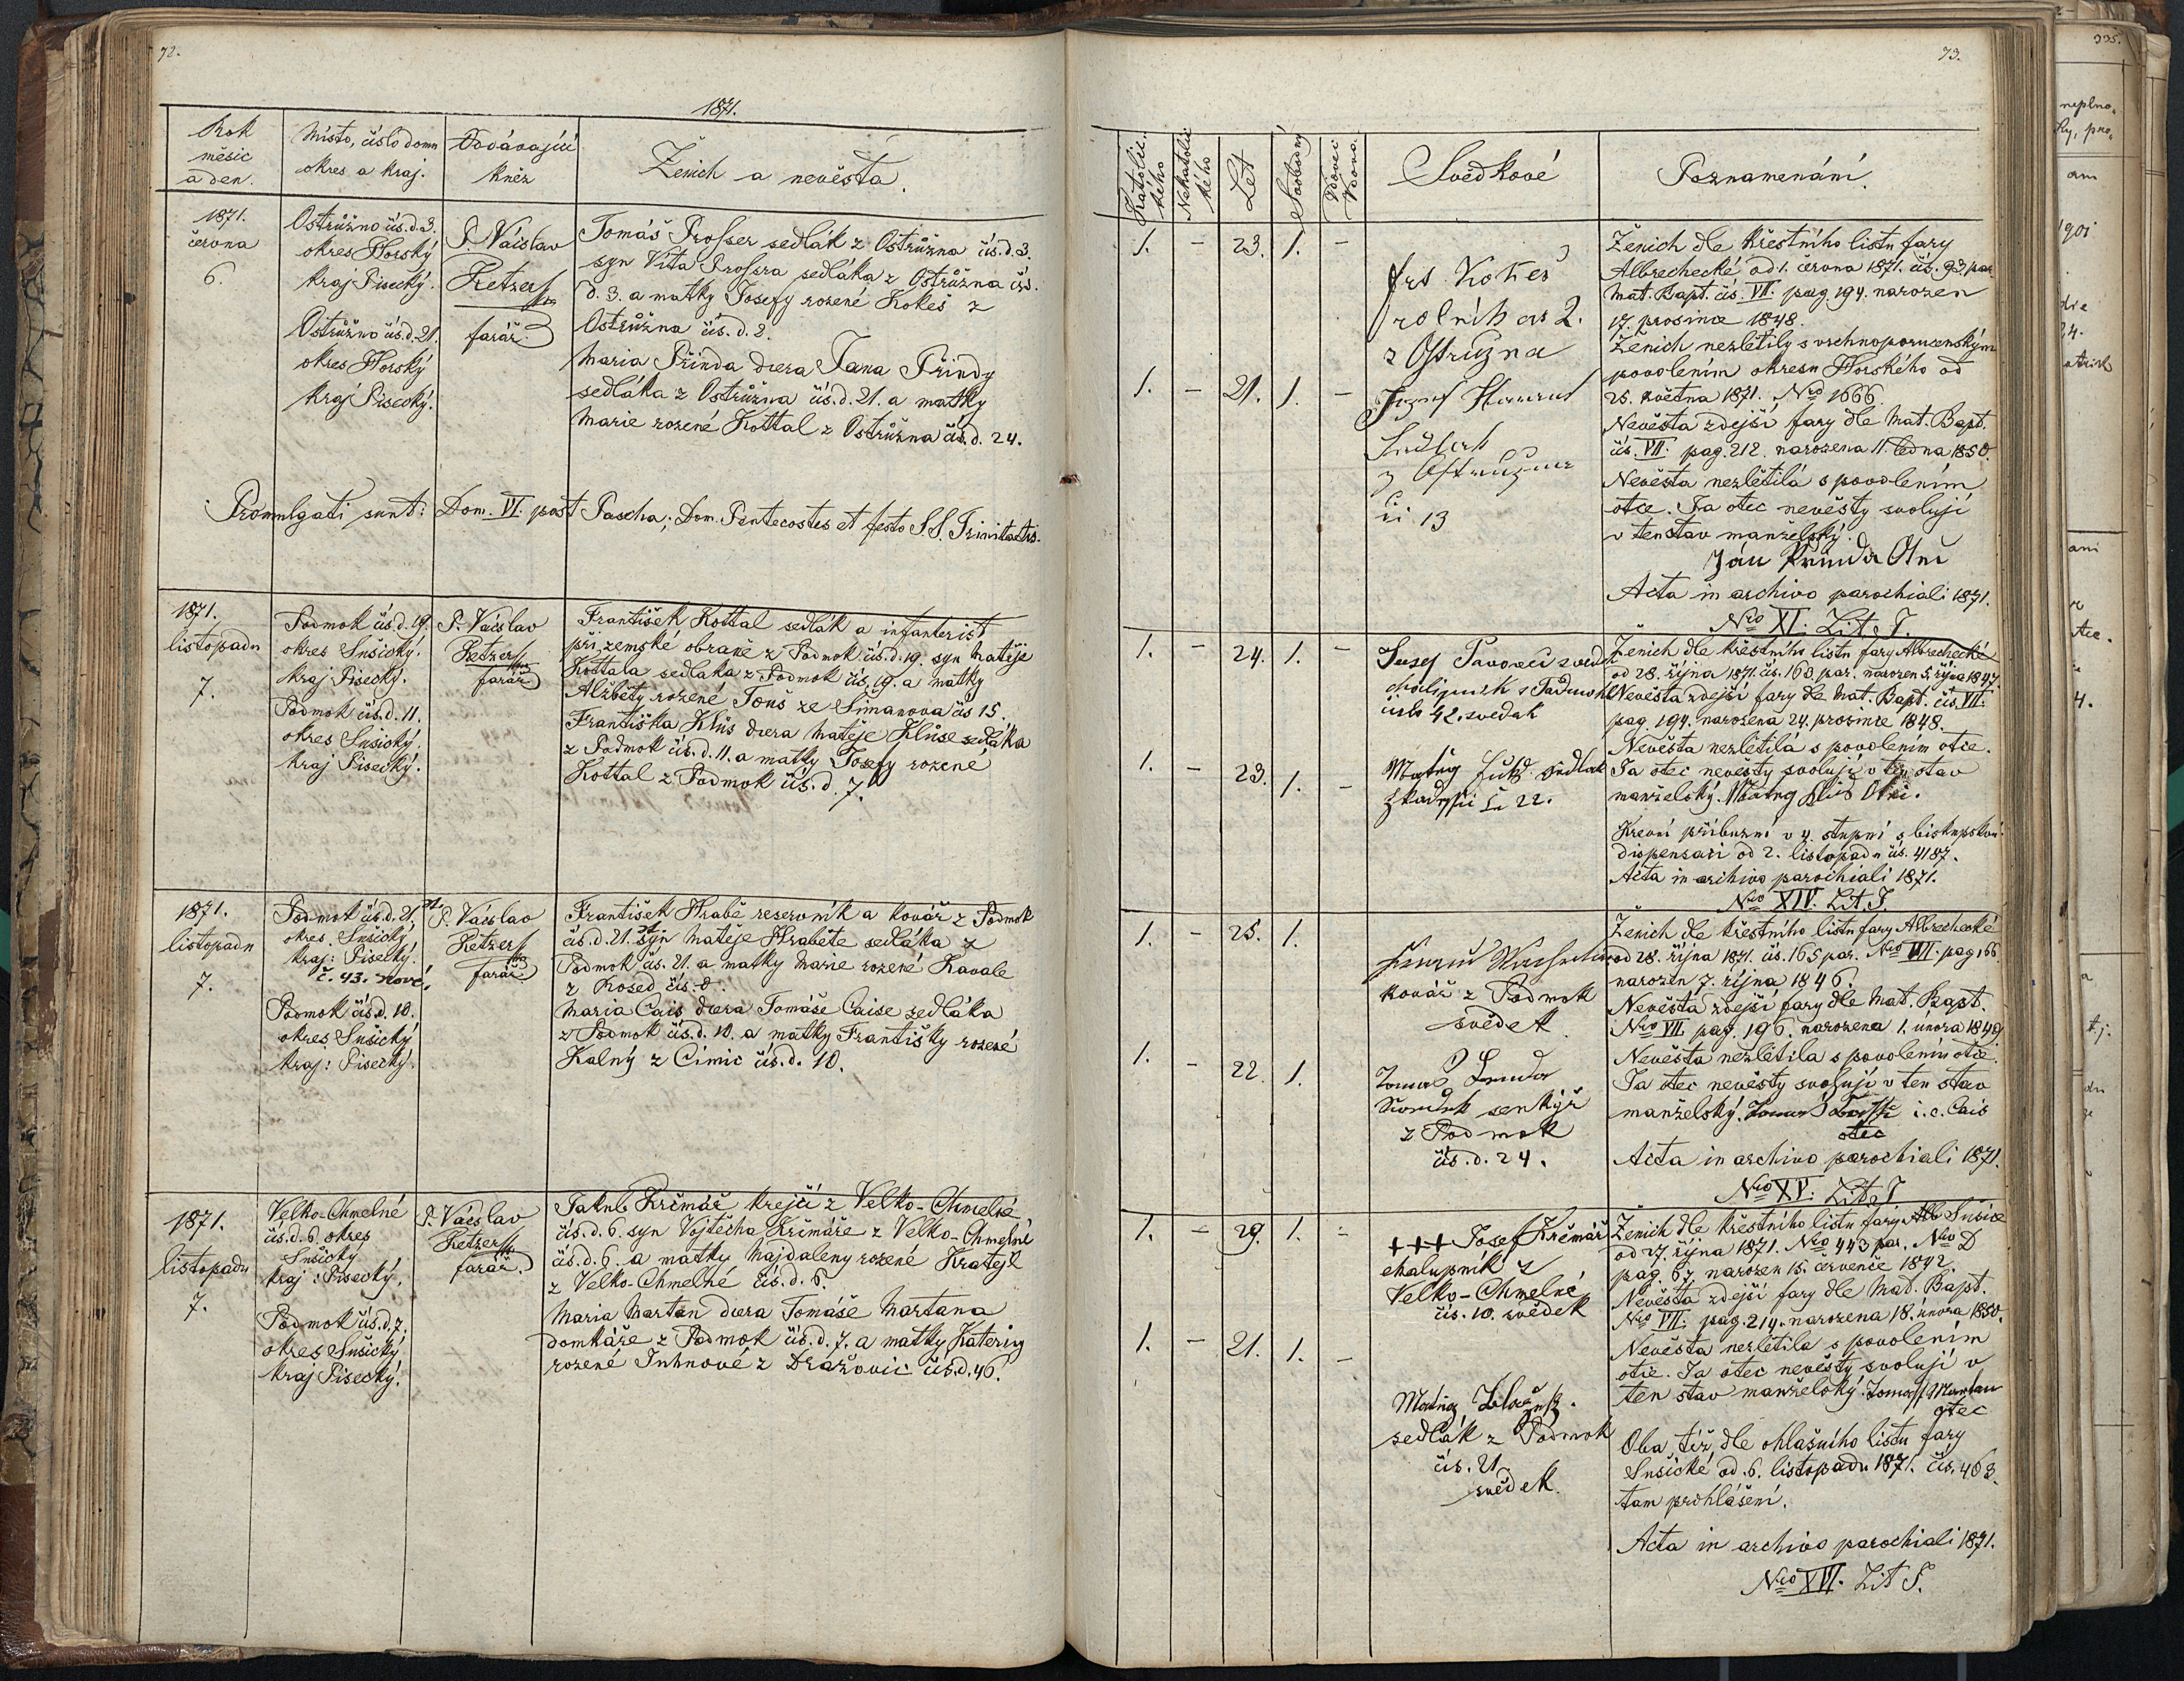 72.
1871.
Rok
měsíc
a den.
Místo, číslo domu
okres a kraj.
Oddávající
kněz
Ženich a nevěsta.
1871.
června
6.
Ostružno čís.d.3.
okres Horský
kraj Písecký.
Ostružno čís.d.21.
okres Horský
kraj Písecký.
P. Václav
Fetzer
farář.
Tomáš Prosser sedlák z Ostružna čís.d.3.
syn Víta Prossra sedláka z Ostružna čís.
d. 3. a matky Josefy rozené Kokeš z
Ostružna čís. d. 2.
Maria Přinda dcera Jana Přindy
sedláka z Ostružna čís.d.21. a matky
Marie rozené Kottal z Ostružna čís.d. 24.
Promulgati sunt: Dom. VI. post Pascha; Dom. Pentecostes et festo S.S. Trinitatis.
1871.
listopadu
7.
Podmok čís.d.19.
okres Sušický.
kraj Písecký.
Podmok čís.d.11.
okres Sušický.
kraj Písecký.
P. Václav
Fetzer
farář
František Kottal sedlák a infanterist
při zemské obraně z Podmok čís.d.19. syn Matěje
Kottala sedláka z Podmok čís.19. a matky
Alžběty rozené Touš ze Šimanova čís 15.
Františka Klůs dcera Matěje Klůse sedláka
z Podmok čís.d.11. a matky Josefy rozené
Kottal z Podmok čís.d. 7.
1871.
listopadu
7.
Podmok čís.d.21.
okres Sušický
kraj: Písecký.
č. 43. nové.
Podmok čís.d.10.
okres Sušický
kraj: Písecký.
P. Václav
Fetzer
farář
František Hrabě reservník a kovář z Podmok
čís.d.21. syn Matěje Hraběte sedláka z
Podmok čís. 21. a matky Marie rozené Kavale
z Kosed čís. 8.
Maria Cais dcera Tomáše Caise sedláka
z Podmok čís.d.10. a matky Františky rozené
Kalný z Čimic čís.d. 10.
1871.
listopadu
7.
Velko-Chmelné
čís.d.6. okres
Sušický
kraj: Písecký.
Podmok čís.d.7.
okres Sušický
kraj Písecký.
P. Václav
Fetzer
farář.
Jakub Krčmář krejčí z Velko-Chmelné
čís.d.6. syn Vojtěcha Krčmáře z Velko-Chmelné
čís.d.6. a matky Majdaleny rozené Kratejl
z Velko-Chmelné čís.d.6.
Maria Martan dcera Tomáše Martana
domkáře z Podmok čís.d.7. a matky Kateřiny
rozené Juhnové z Dražovic čís.d.46.
73.
Katolic.
kého
Nekatolic
kého
Let
Svobodný
Vdovec
Vdova.
Svědkové
Poznamenání.
1. - 23. 1. -
Frt. Kokeš
rolník čís 2.
z Ostružna
1. - 21. 1. -
Josef
Sedlák
z Ostružna
či 13
Ženich dle křestního listu fary
Albrechecké od 1. června 1871. čís. 93. par.
Mat. Bapt. čís. VII. pag. 194. narozen
17. prosince 1848.
Ženich nezletilý s vrchnoporučenským
povolením okresu Horského od
25. května 1871. No 1666.
Nevěsta zdejší fary dle Mat. Bapt.
čís. VII: pag. 212. narozena 11. ledna 1850.
Nevěsta nezletilá s povolením
otce. Já otec nevěsty svoluji
v ten stav manželský.
Ján Přinda Otec
Acta in archivo parochiali 1871.
Nro XI: Lit. J.
1. - 24. 1. -
Josef
chalupník z Podmokl
číslo 42. svědek
1. - 23. 1. -
Matěj sedlák
č. 22.
Ženich dle křestního listu fary Albrechecké
od 28. října 1871. čís. 160. par. narozen 5. října 1847.
Nevěsta zdejší fary dle Mat. Bapt. čís. VII:
pag. 194. narozena 24. prosince 1848.
Nevěsta nezletilá s povolením otce.
Já otec nevěsty svoluji v ten stav
manželský. Matěj Klůs Otec.
Krevní příbuzní v 4. stupni s biskupskou
dispensací od 2. listopadu čís. 4187.
Acta in archivo parochiali 1871.
Nro XIV. Lit. J.
1. - 25. 1.
kovář z Podmok
svědek
1. - 22. 1.
Tomáš
Svědek šenkýř
z Podmok
čís.d. 24.
Ženich dle křestního listu fary Albrechecké
od 28. října 1871. čís. 165 par. Nro VII: pag 166.
narozen 7. října 1846.
Nevěsta zdejší fary dle Mat. Bapt.
Nro VII. pag. 196. narozena 1. února 1849.
Nevěsta nezletilá s povolením otce.
Já otec nevěsty svoluji v ten stav
manželský. Tomáš i. e. Cais
otec
Acta in archivo parochiali 1871.
Nro XV: Lit. J
1. - 29. 1. -
+++ Josef Krčmář
chalupník z
Velko-Chmelné
čís. 10. svědek
1. - 21. 1. -
Matěj
sedlák z Podmok
čís. 21.
svědek.
Ženich dle křestního listu fary Sušice
od 27. října 1871. Nro 443 par. Nro D
pag. 67. narozen 15. července 1842.
Nevěsta zdejší fary dle Mat. Bapt.
Nro VII: pag. 214. narozena 18. února 1850.
Nevěsta nezletilá s povolením
otce. Já otec nevěsty svoluji v
ten stav manželský. Tomáš Martan
otec
Oba, též, dle ohlašního listu fary
Sušické od 6. listopadu 1871. čís. 463.
tam prohlášení.
Acta in archivo parochiali 1871.
Nro XVI. Lit J.
335.